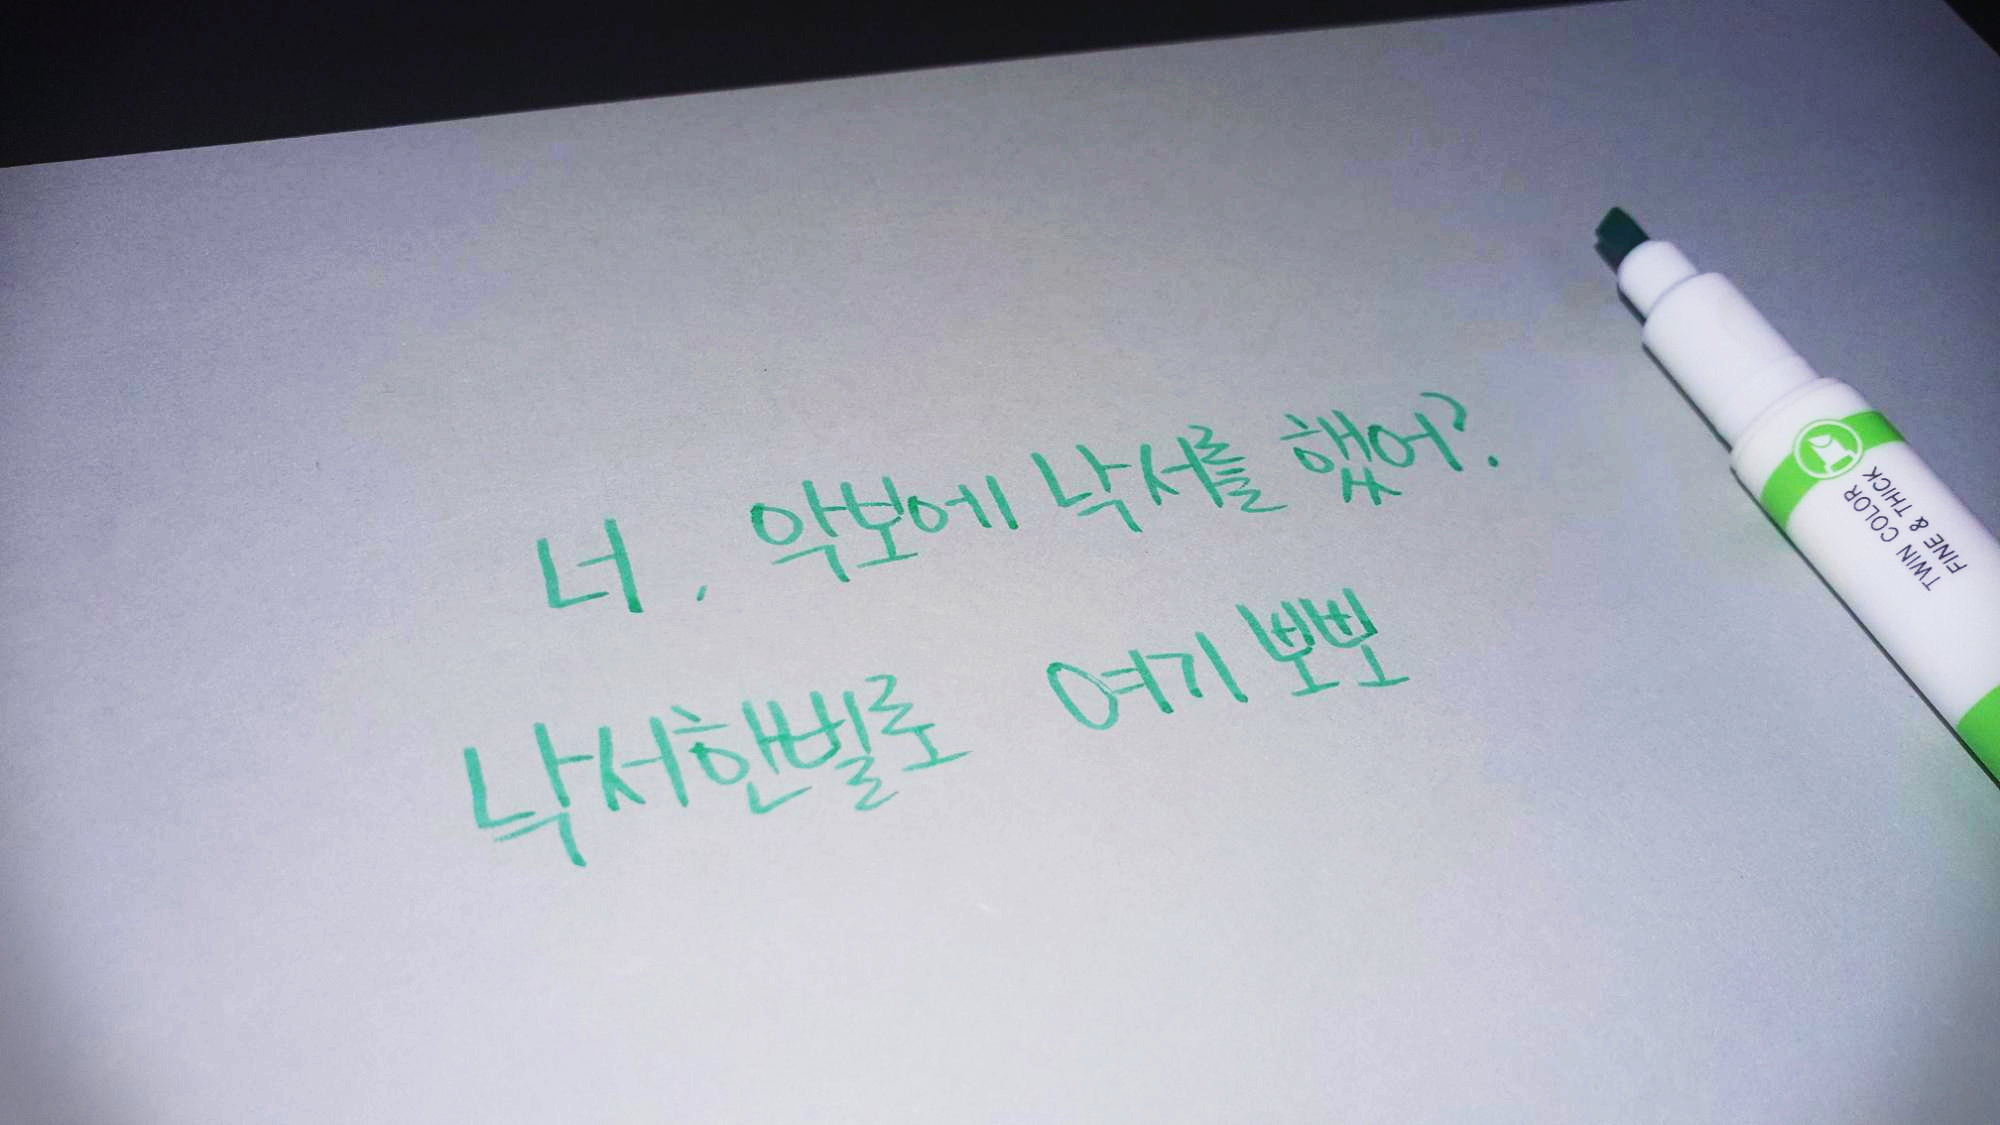 너, 악보에 낙서를 했어?
낙서한벌로 여기 뽀뽀
TWIN COLOR
FINE & THICK